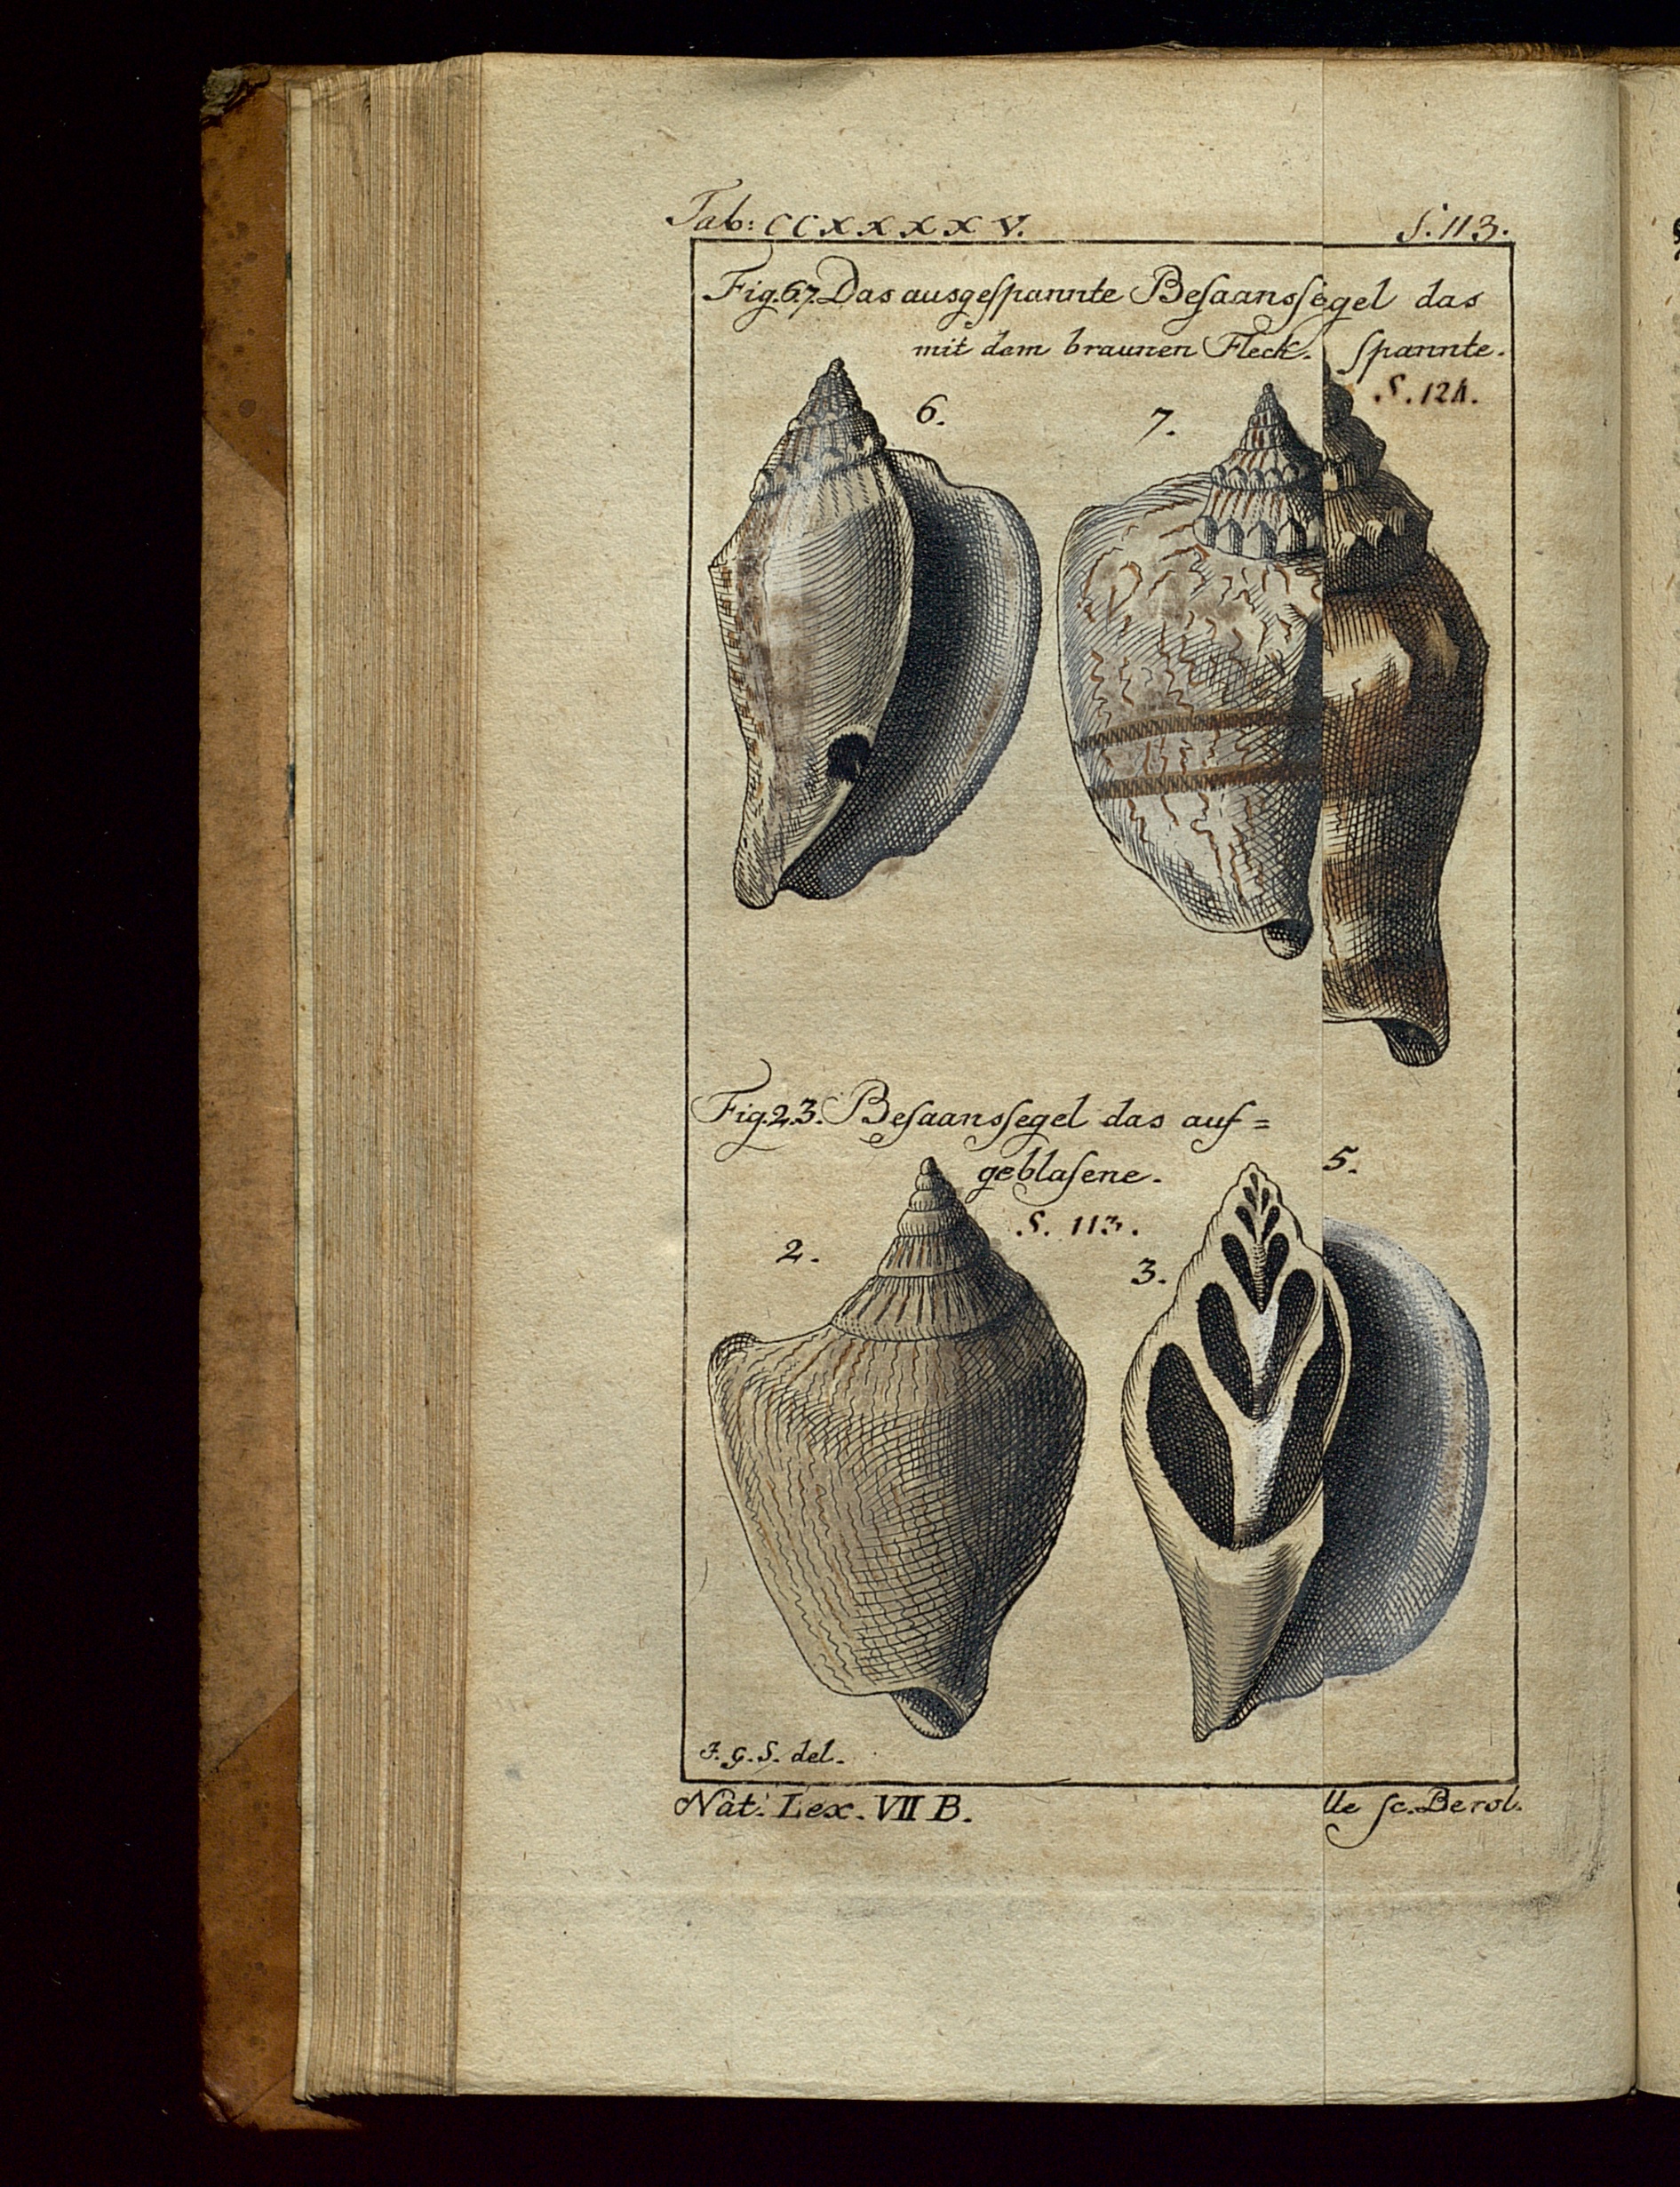 Tab: CCXXXXV. S. 113.
Fig. 6.7. Das ausgeſpannte Beſaansſegel das
mit dem braunen Fleck. ſpannte.
S. 124.
6.
7.
Fig. 2.3. Beſaansſegel das auf=
geblaſene.
5.
S. 113.
2.
3.
F. G. S. del.
Nat. Lex. VII B. lle ſc. Berol.